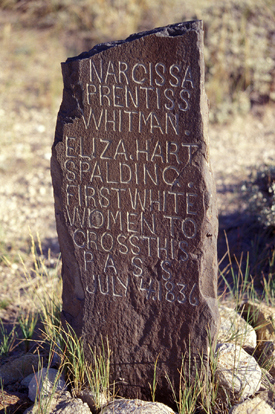 NARCISSA
PRENTISS
WHITMAN.
ELIZA. HART.
SPALDING.
FIRST WHITE
WOMEN TO
CROSS THIS
PASS
JULY 4. 1836